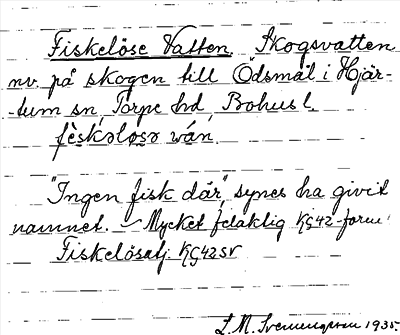 Fiskelöse Vatten. Skogsvatten
nv. på skogen till Ödsmål i Hjär-
-tum sn, Torpe hd, Bohusl.
fèskəløsə wán.
"Ingen fisk där", synes ha givit
namnet. – Mycket felaktig KG42-form:
Fiskelösatj. KG42SV
1935.